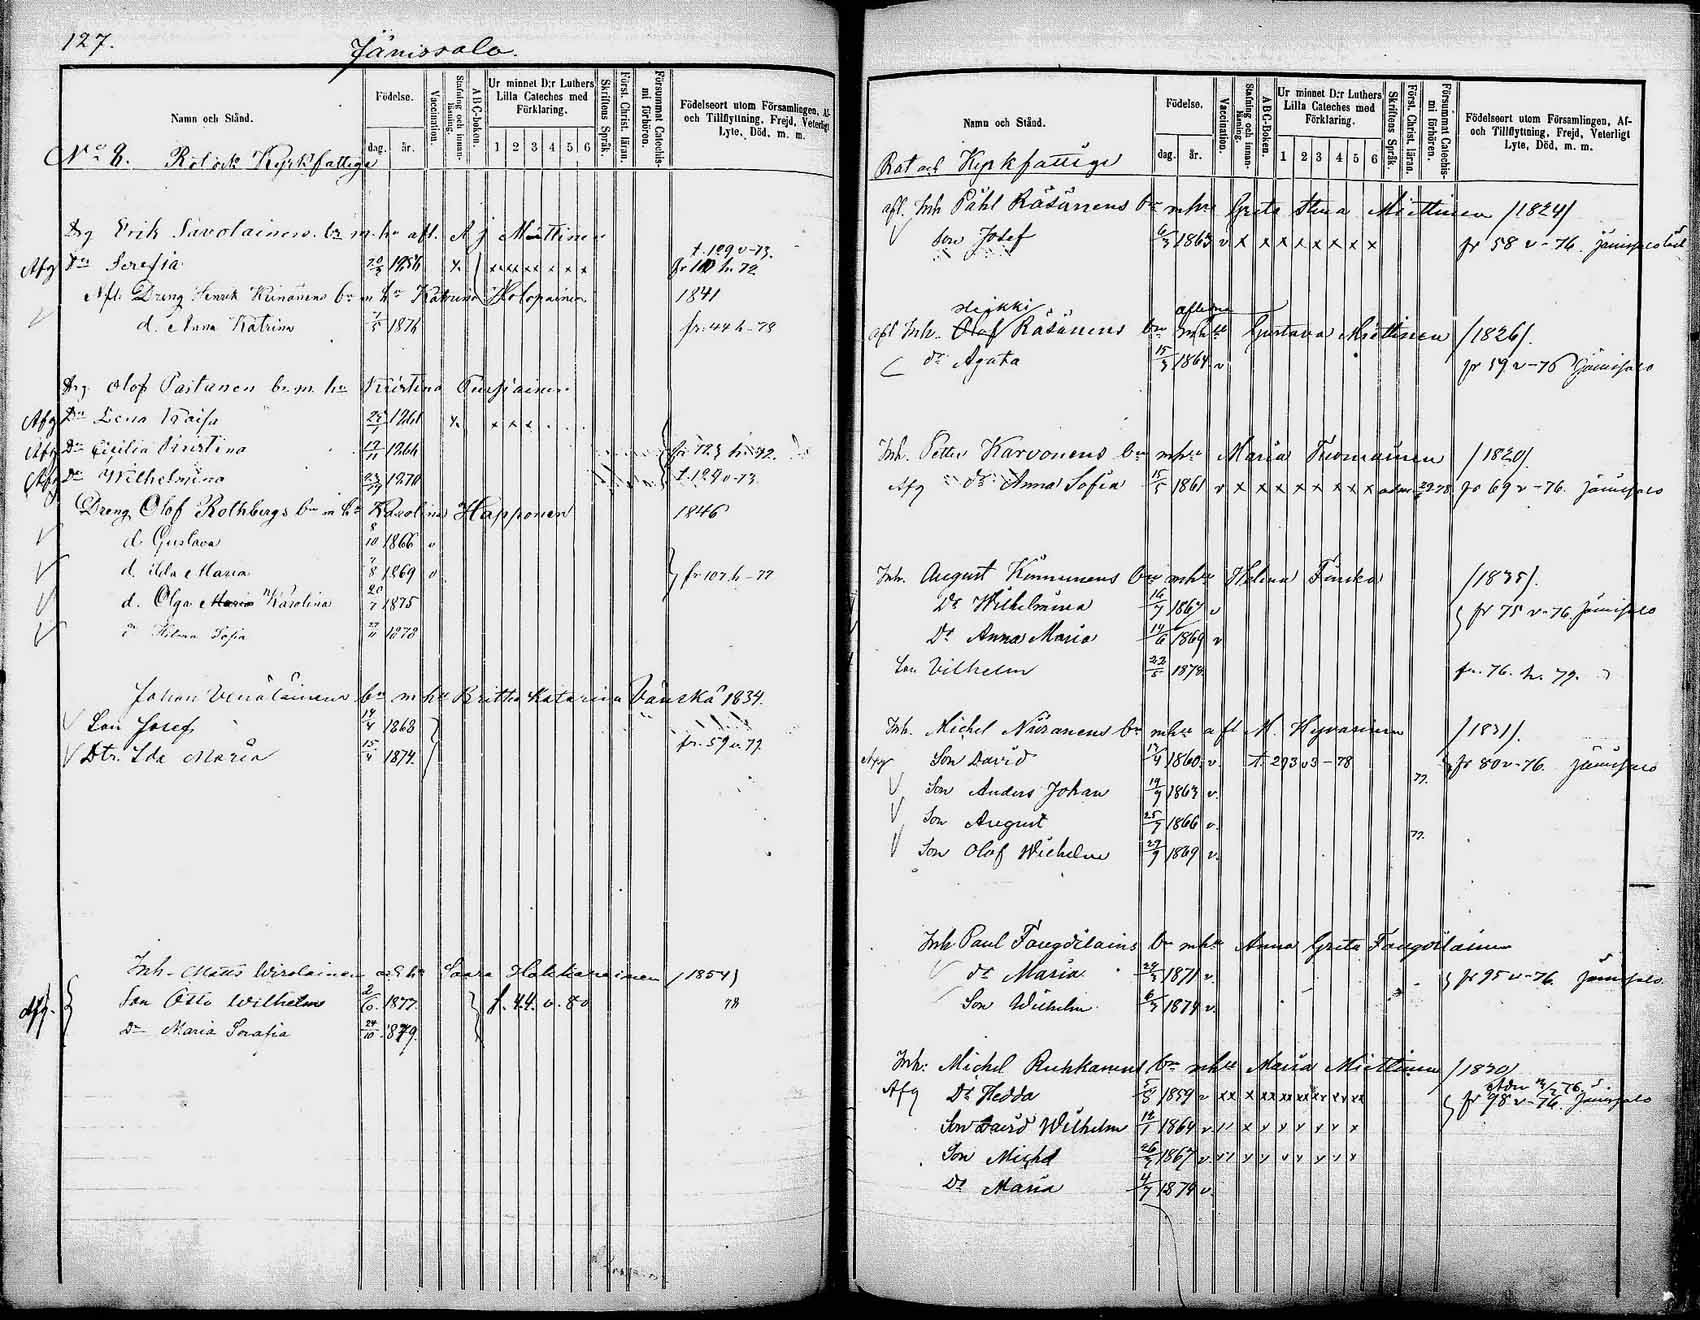 127.
Jänissalo.
Namn och Stånd.
Födelse.
dag. år.
Vaccination.
Stafning och innan-läsning.
A B C-boken.
Ur minnet D:r Luthers Lilla Cateches med Förklaring.
1 2 3 4 5 6
Skriftens Språk.
Först. Christ. läran.
Försummat Catechis-mi förhören.
Födelseort utom Församlingen, Af- och Tillflyttning, Frejd, Veterligt Lyte, Död, m. m.
No 8. Rot och Kyrkfattige
Drg Erik Savolainens bn m. hu afl. A j Miettinen
Afg Dr Serefia 1856 fr 110 h. 72 t. 129 v-73.
Afl. Dreng Henrik Keinänens bn m hu Katrina Holopainen 1841
d. Anna Katrina 7/5 1876 fr. 44 h-78
Drg Olof Partanen bn m. hu Kristina Turpiainen
Afg Dr Lena Kaisa 1861
Afg Dr Cicilia Kristina 1864 fr 123 h-72.
Afg Dr Wilhelmina 1870 t. 129 v-73.
Dreng Olof Rothbergs bn m hu Karolina Happonen 1846
d. Gustava 8/10 1866 v
d. Ida Maria 7/8 1869 v fr 107 h-77
d. Olga Maria Karolina 20/7 1875
d Hilma Sofia 1878
Johan Venäläinens bn m hu Britha Katarina Vänskä 1834.
Son Josef 14/4 1868
Dtr. Ida Maria 15/4 1874. fr. 59 v. 77
Inh. Matts Wirolainen och hu Saara Hakkarainen (1854)
Afg. Son Otto Wilhelm 2/6 1877. f. 44. v. 80 78
Dr Maria Serafia 24/10 1879.
Namn och Stånd.
Födelse.
dag. år.
Vaccination.
Stafning och innan-läsning.
A B C-Boken.
Ur minnet D:r Luthers Lilla Cateches med Förklaring.
1 2 3 4 5 6
Skriftens Språk.
Först. Christ. läran.
Försummat Catechis-mi förhören.
Födelseort utom Församlingen, Af- och Tillflyttning, Frejd, Veterligt Lyte, Död, m. m.
Rot och Kyrkfattige
afl. Inh Påhl Räsänens bn m hu Greta Stina Miettinen /1824/
Son Josef 6/3 1863 v x x x x x x x x fr 58 v-76. Jänissalo
Heikki aflidne
afl Inh. Olof Räsänens bn m hu Gustava Miettinen /1826/.
dr Agata 15/3 1864. v fr 59 v-76 Jänissalo
Inh. Petter Karvonens bn m hu Maria Tuomainen /1820/.
Afg dr Anna Sofia 15/5 1861 v x x x x x x x x adm 78 fr 69 v-76. Jänissalo
Inh. August Kinnunens bn m hu Helena Finska /1835/.
Dr Wilhelmina 16/7 1867 v fr 75 v-76. Jänissalo
Dr Anna Maria 14/6 1869 v
Son Vilhelm 22/5 1878. fr. 76. h. 79.
Inh. Michel Niiranens bn m hu afl M. Hyvärinen /1831/.
Afg Son David 1860. v. t. 293 v3-78 fr 80 v-76. Jänissalo
Son Anders Johan 19/9 1863 v. 77.
Son August 25/7 1866 v.
Son Olof Wilhelm 27/9 1869 v. 77.
Inh Paul Tougoilains bn m hu Anna Greta Tougoilainen
dr Maria 24/3 1871 v. fr 95 v-76. Jänissalo.
Son Wilhelm 6/3 1874 v.
Inh: Michel Ruhkanens bn m hu Maria Miettinen /1830/
Afg Dr Hedda 5/8 1859 v xx x xx xx xx xx xx xx fr 98 v-76. Jänissalo
Son David Wilhelm 12/1 1864 v
Son Michel 26/3 1867 v
Dr Maria 4/7 1874 v.